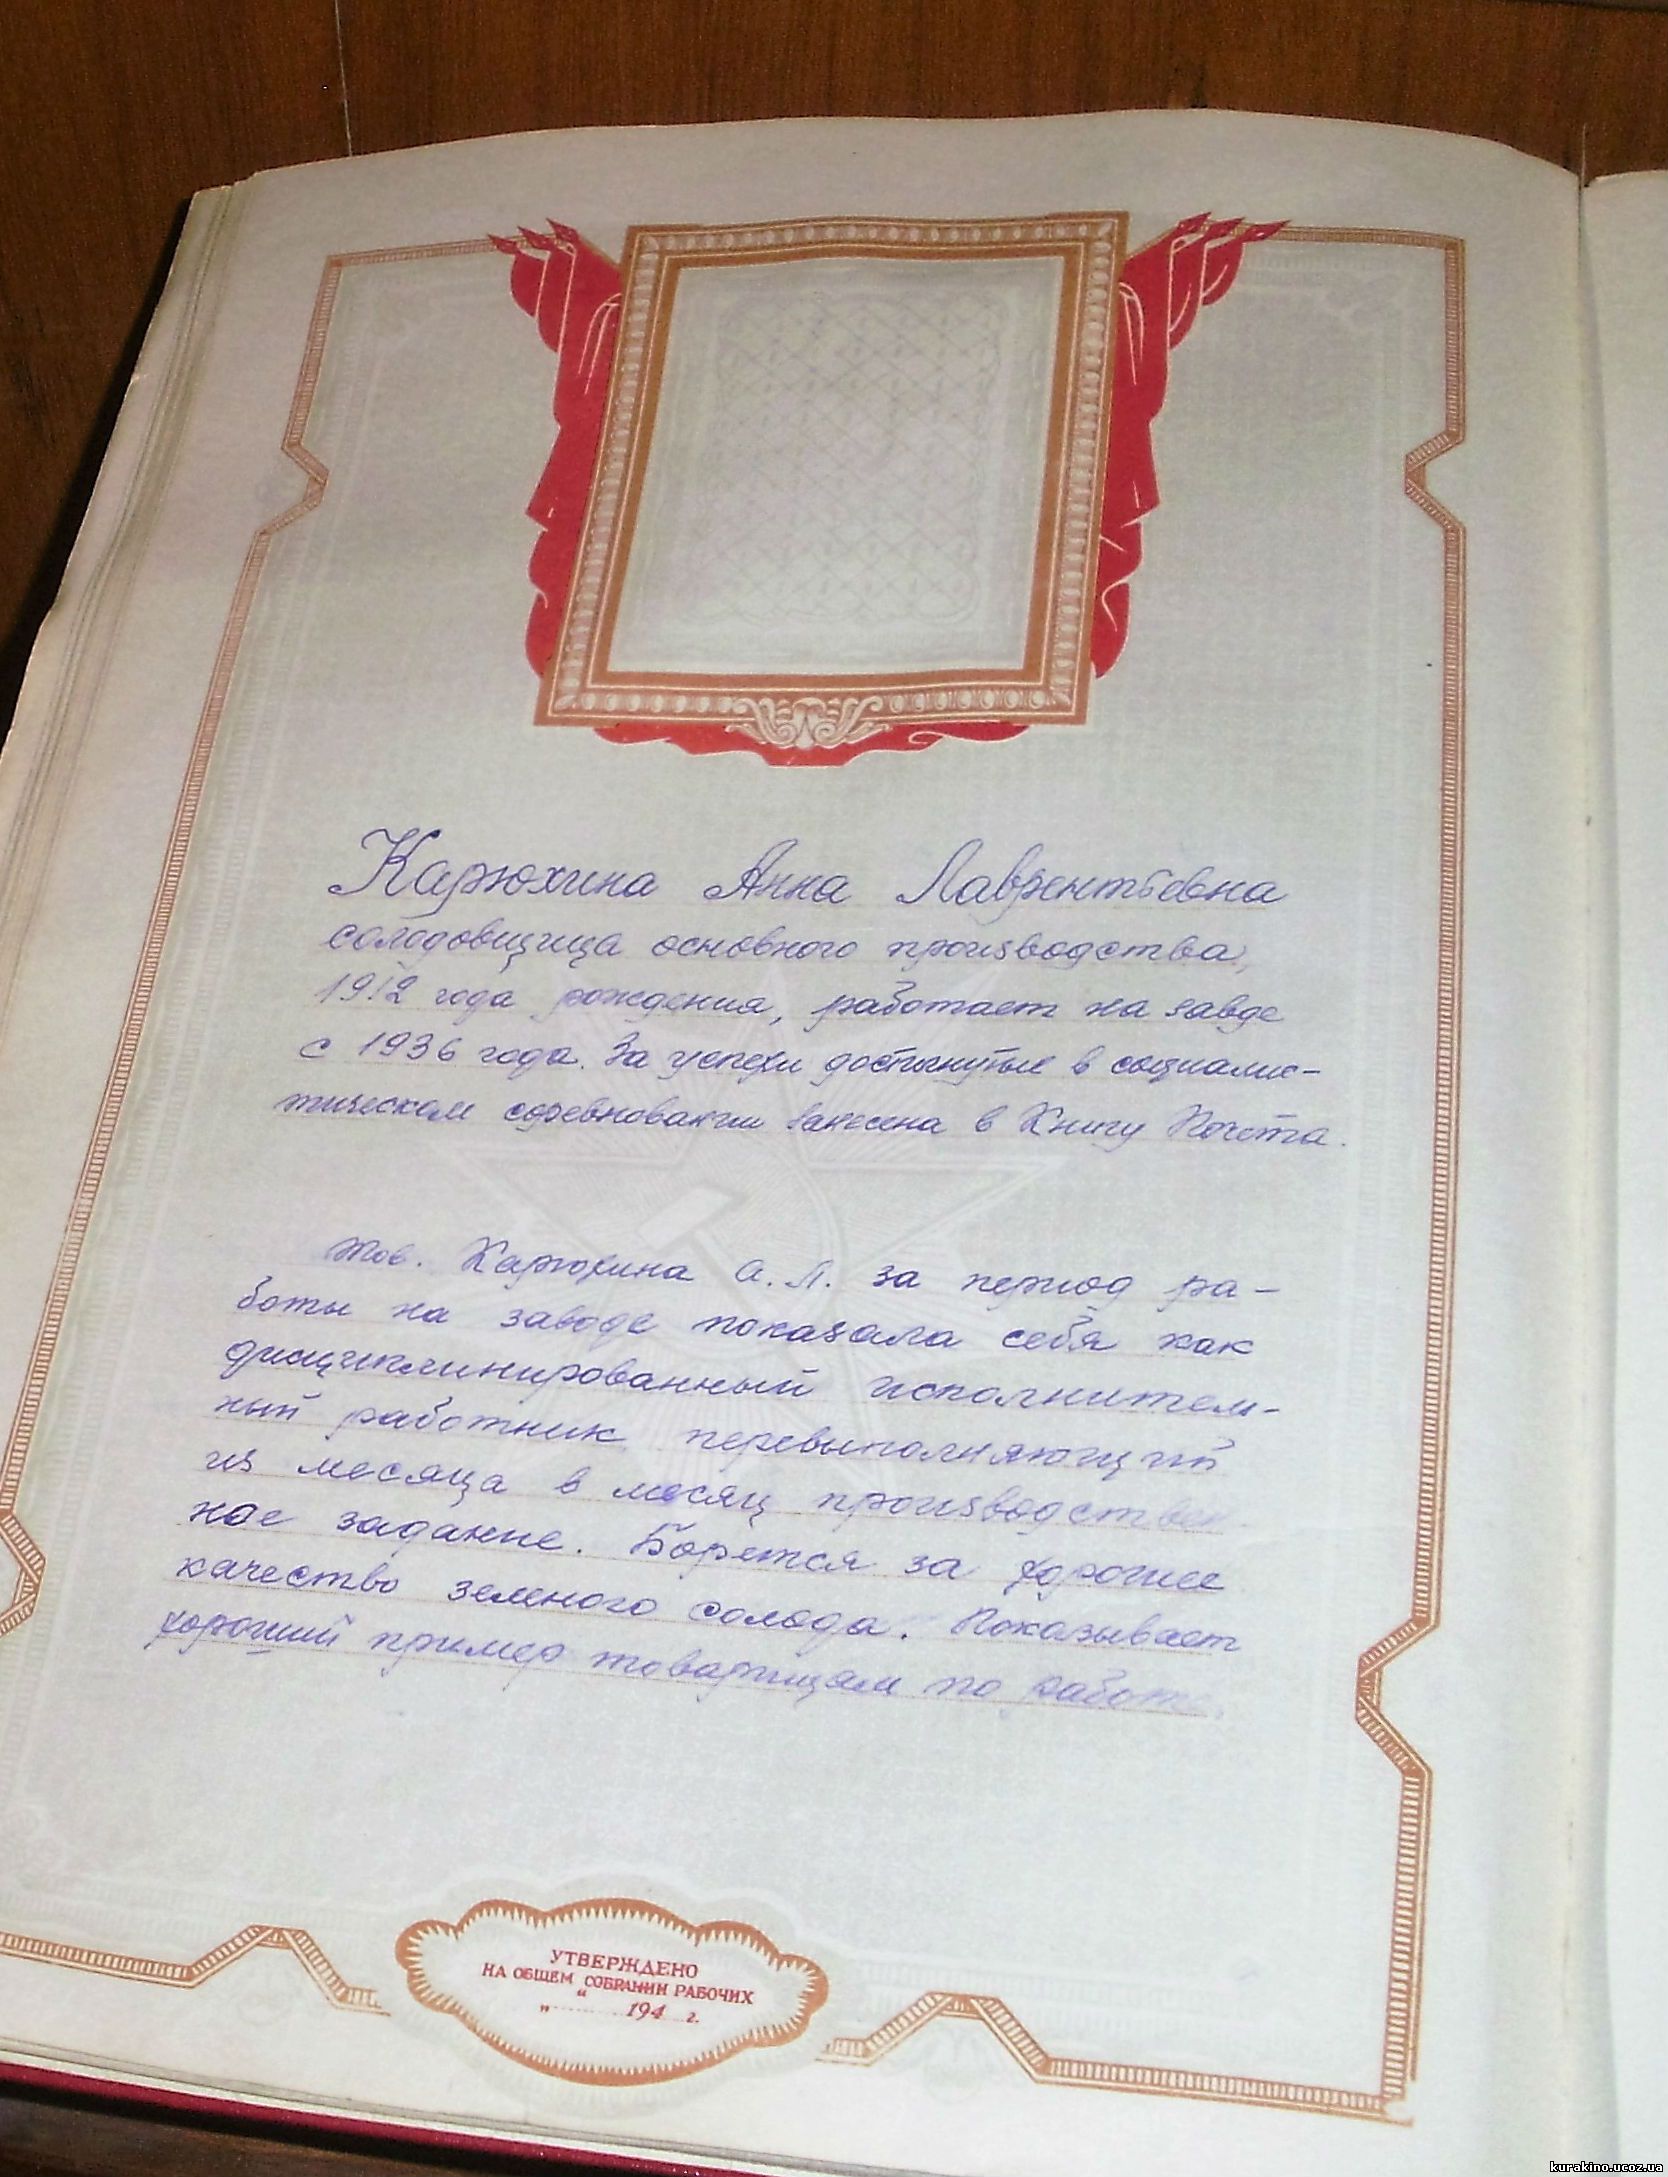 Карюхина Анна Лаврентьевна
солодовщица основного производства,
1912 года рождения, работает на завде
с 1936 года. За успехи достигнутые в социалис-
тическом соревновании занесена в Книгу Почёта.
Тов. Карюхина А. Л. за период ра-
боты на заводе показала себя как
дисциплинированный исполнитель-
ный работник перевыполняющий
из месяца в месяц производствен
ное задание. Борется за хорошее
качество зеленого солода. Показывает
хороший пример товарищам по работе.
УТВЕРЖДЕНО
НА ОБЩЕМ СОБРАНИИ РАБОЧИХ
„ “ 194 г.
kurakino.ucoz.ua